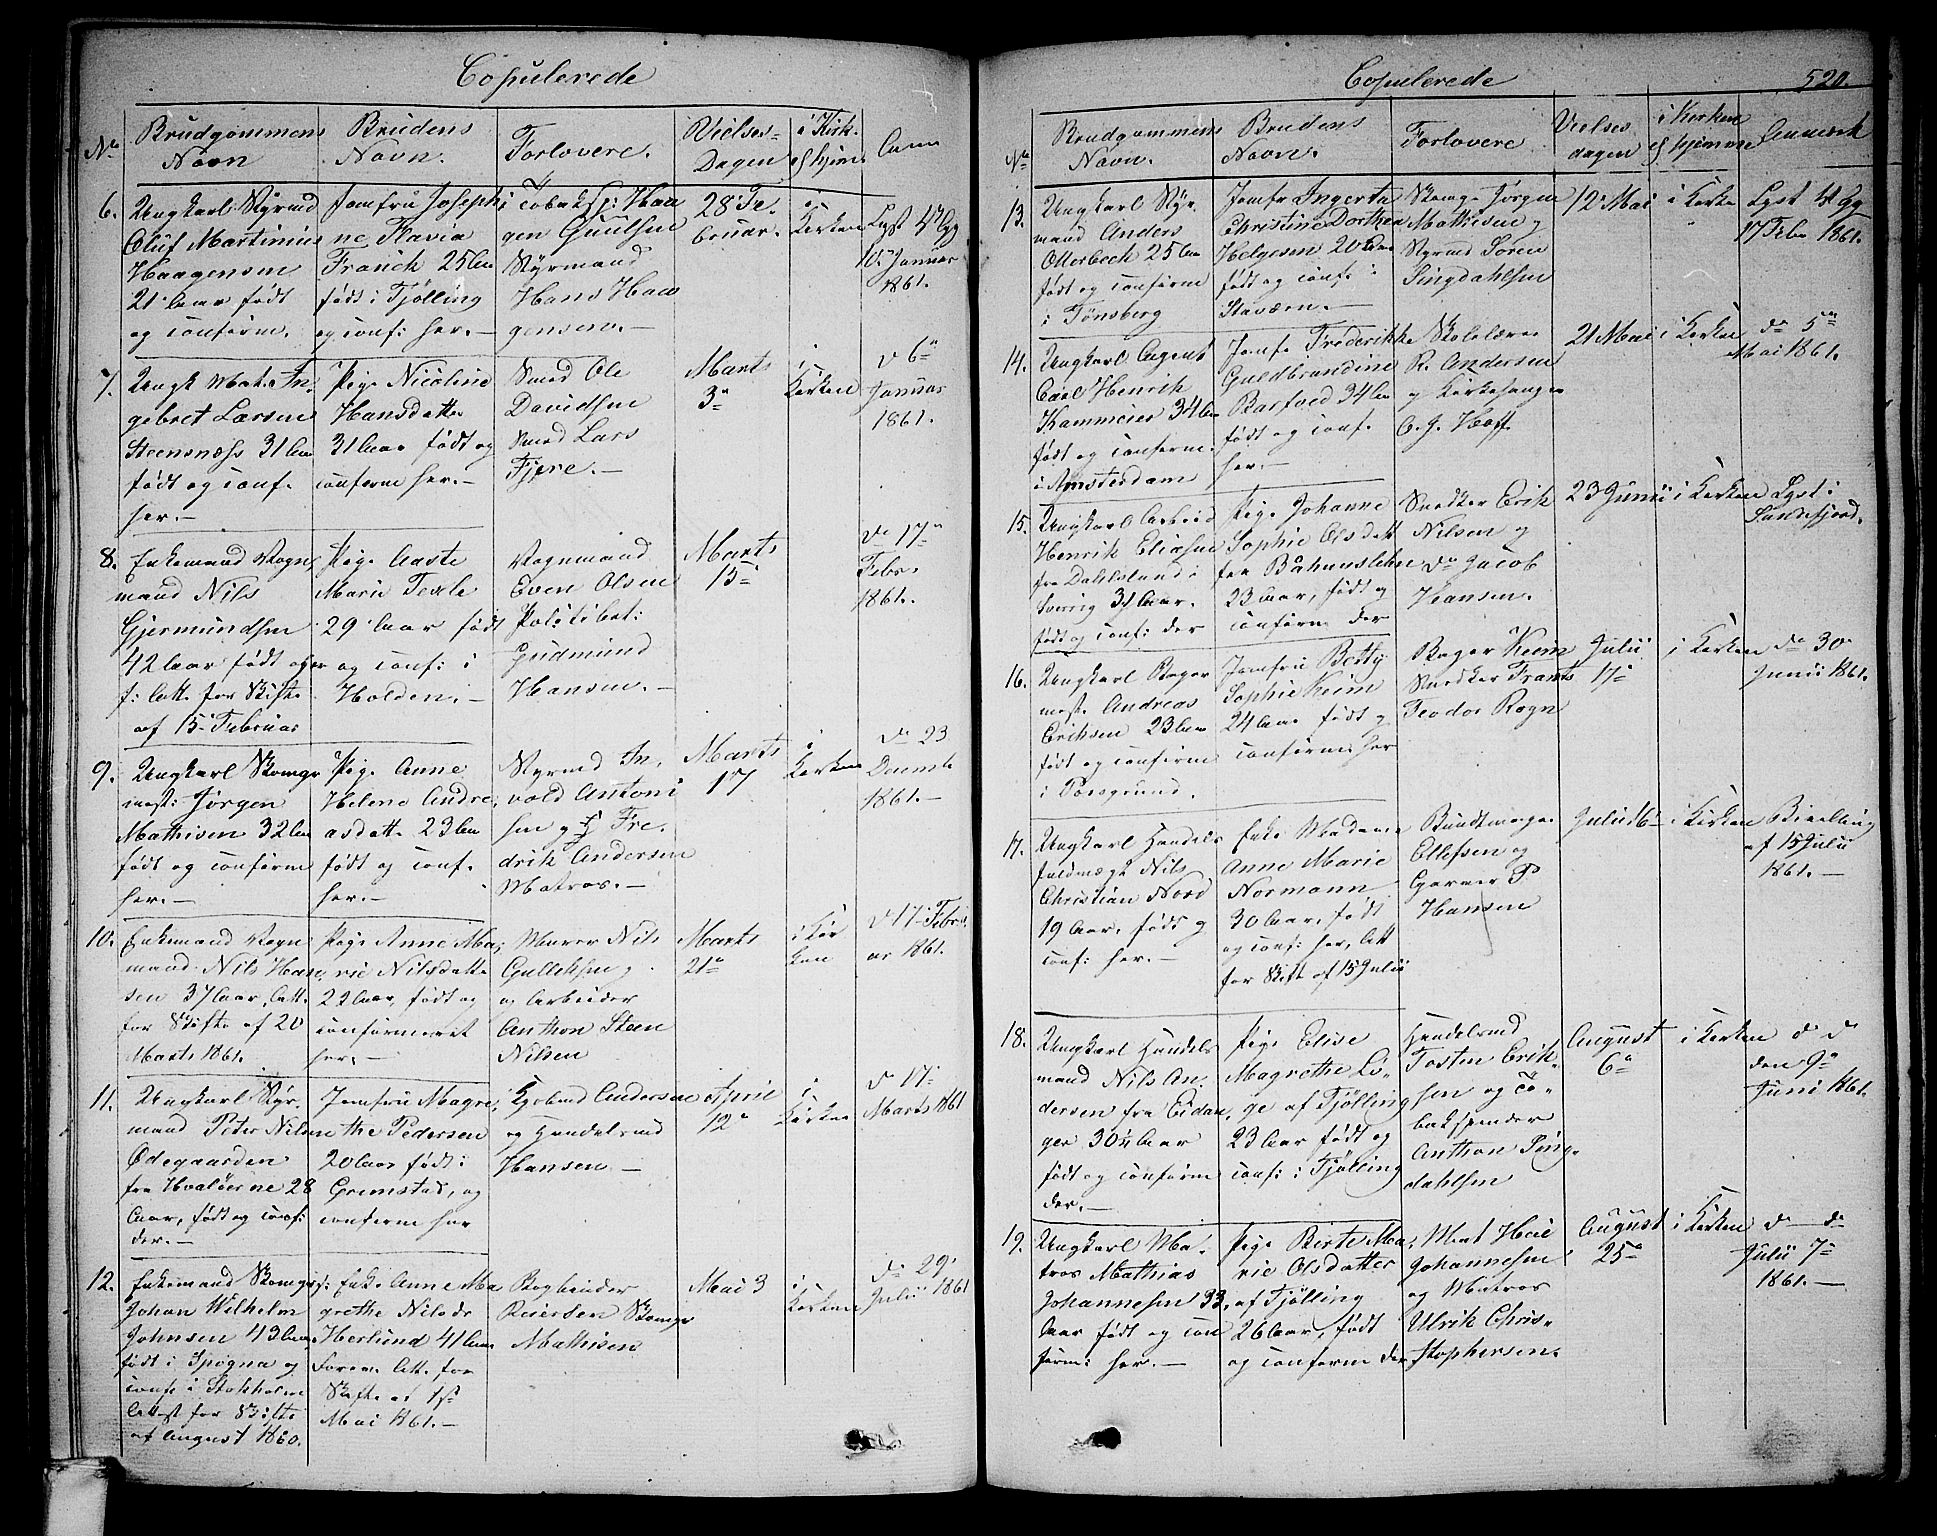 Copulerede
No
Brudgommens
Navn
Brudens
Navn.
Forlovere.
Vielses-
Dagen
i Kirk.
el hjem.
Anm
6.
Ungkarl Styrmd
Oluf Martinius
Haagensen
21 Aar født
og conform.
Jomfru Joseph
ne Flavia
Franck 25 Aar
født i Tjølling
og conf: her.—
Tobaksp: Haa
gen Guulsen
Styrmand
Hans Haa
gensen.—
28 Fe
bruar.
i
Kirken
Lyst 4de Gg
10 Januar
1861.
7.
Ungk Mat. In,
gebret Larsen
Steensnæss 31 Aar
født og conf.
her.—
Pige Nicoline
Hansdatter
31 Aar født og
conform her.—
Smed Ole
Davidsen
Smed Lars
Fjære.—
Marts
3
i
Kirken
d 6
Januar
1861.
8.
Enkemand Vogn,
mand Nils
Gjermundsen
42 Aar født og
f: Att. for Skifte
af 15 Februar
Pige Aaste
Marie Terkle
29 Aar født
og conf: i
Holden.—
Vognmand
Even Olsen
Politibet:
Gudmund
Hansen.—
Marts
15
do 17
Febr.
1861.
9.
Ungkarl Skomgr
mest: Jørgen
Mathisen 32 Aar
født og conform
her.—
Pige Anne
Helene Andre,
asdatt. 23 Aar
født og conf.
her.—
Styrmd In,
vold Antoni
sen og Fre.
drik Andersen
Matros.—
Marts
17
i
Kirken
do 23
Decemb
1861.—
10.
Enkemand Vogn
mand Nils Han,
sen 37 Aar, Att.
for Skifte af 20
Marts 1861.
Pige Anne Ma,
rie Nilsdatte
22 Aar, født og
conformeret
her.—
Murer Nils
Gulleksen
og Arbeider
Anthon Steen
Nilsen
Marts
21
i Kir
ken
d 17 Febru
ar 1861.
11.
Ungkarl Styr.
mand Peter Nilsen
Ødegaarden
fra Hvaløerne 28
Aar, født og conf:
der.—
Jomfru Magre,
the Pedersen
20 Aar født i
Grimstad, og
conform her
Andersen
og Handelsmd
Hansen —
April
12
i
Kirken
do 17
Marts 1861
12.
Enkemand Skomgr
Johan Wilhelm
Johnsen 43 Aar
født i
conf i Stokholm
Attest for Skifte
af August 1860.
Enke Anne Ma
grethe Nilsdr
Herlund 41 Aar
Foren. Att. for
Skifte af 1ste
Mai 1861.—
Bogbinder
Reiersen Skomgr
Mathisen
Mai 3
i
Kirken
do 29
Julii 1861
Copulerede
520.
No
Brudgommens
Navn.
Brudens
Navn.
Forlovere
Vielses
dagen
i Kirken
el hjemme
Anmærk
13.
Ungkarl Styr.
mand Anders
Otterbech 25 Aar
født og conform
i Tønsberg
Jomfr Ingerta
Christine Dorthea
Helgesen 20 Aar
født og conf. i
Staværn.—
Skomgr Jørgen
Mathisen og
Styrmd Søren
Lingdahlsen
12 Mai
i Kirke
Lyst 4 Gg
17 Febr 1861.
14.
Ungkarl Agent
Carl Henrik
Kammeier 34 Aar
født og conform.
i Amsterdam
Jomfr Frederikke
Guldbrandine
Barfoed 34 Aar
født og conf.
her.—
Skolelærer
R. Andersen
og Kirkesanger
C. J. Hoff
21 Mai
i Kirken
do 5
Mai 1861.
15.
Ungkarl Arbeid
Henrik Eliasen
fra Dahlsland i
Sverrig 31 Aar.
født og conf: der
Pige Johanne
Sophie Olsdatt
fra Båhuuslehn
23 Aar, født og
conform der
Snedker Erik
Nilsen og
do Jacob
Hansen.
23 Junii
i Kirken
Lyst i
Sandefjord.
16.
Ungkarl Bager
mest. Andreas
Eriksen 23 Aar
født og conform
i Porsgrund.
Jomfru Betty
Sophie Keim
24 Aar født og
conform her
Bager Keim
Snedker Frants
Teodor Rogn
Julii
17
i Kirken
do 30
Junii 1861.
17.
Ungkarl Handels
fuldmægt Nils
Christian Nord
19 Aar, født og
conf: her.—
Enke Madame
Anne Marie
Normann
30 Aar, født
og conf: her, Att
for Skift af 15 Julii
Bundtmager
Ellefsen og
Garver P
Hansen
Julii 16
i Kirken
Bevilling
af 15 Julii
1861.—
18.
Ungkarl Handels
mand Nils An.
dersen fra Eidan,
ger 30 1/4 Aar
født og conform
der.—
Pige Elise
Magrethe Li-
ge af Tjølling
23 Aar født og
conf: i Tjølling
Handelsmd
Tosten Erik-
sen og To-
baksspinder
Anthon Ping-
dahlsen
August
6
i Kirken
d d
den 9
Juni 1861.
19.
Ungkarl Ma.
tros Mathias
Johannesen 33,
Aar født og con
form: her.—
Pige Birte Ma,
rie Olsdatter
af Tjølling
26 Aar, født
og conform der
Mat
Johannesen
og Matros
Ulrik Chris-
tophersen.
August
25
i Kirken
do do
Julii 7
1861.—